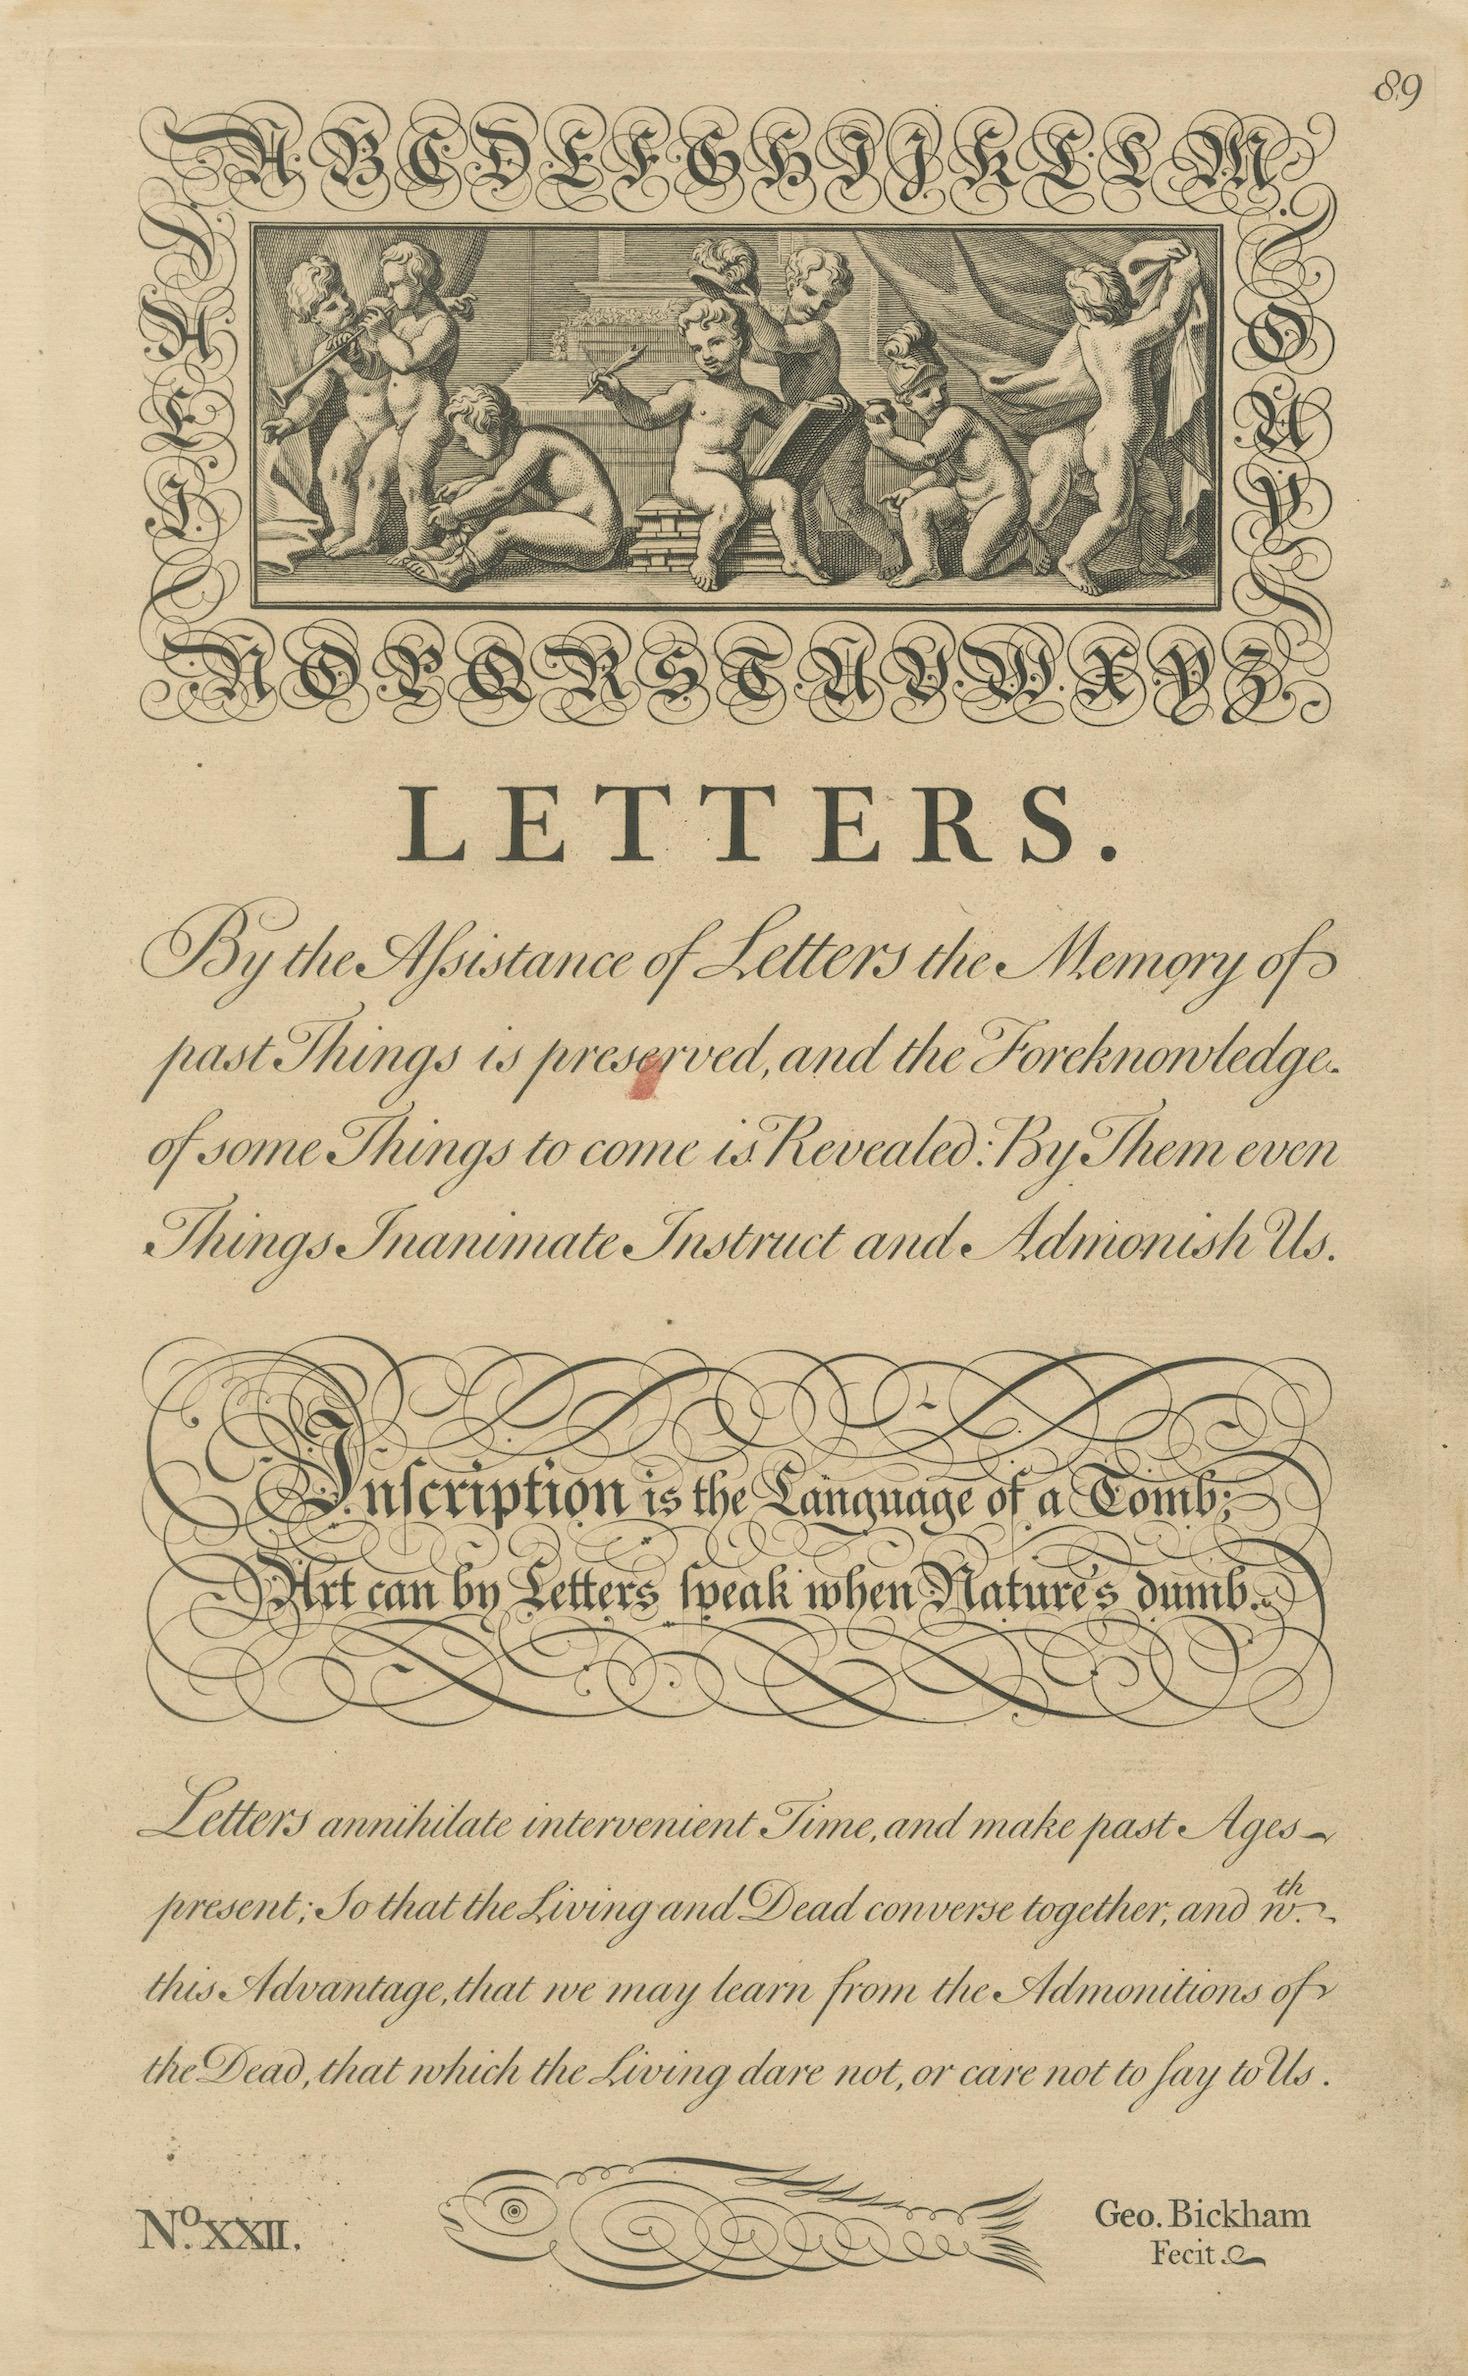 89
A B C D E F G H I J K L L M
A
E
I
O
U
Y
N O P Q R S T U V W X Y Z.
LETTERS.
By the Aſsistance of Letters the Memory of
past Things is preserved, and the Foreknowledge
of some Things to come is Revealed: By Them even
Things Inanimate Instruct and Admonish Us.
Inſcription is the Language of a Tomb;
Art can by Letters ſpeak when Nature's dumb.
Letters annihilate intervenient Time, and make past Ages
present; So that the Living and Dead converse together, and wth.
this Advantage, that we may learn from the Admonitions of
the Dead, that which the Living dare not, or care not to ſay to Us.
No. XXII.
Geo. Bickham
Fecit.